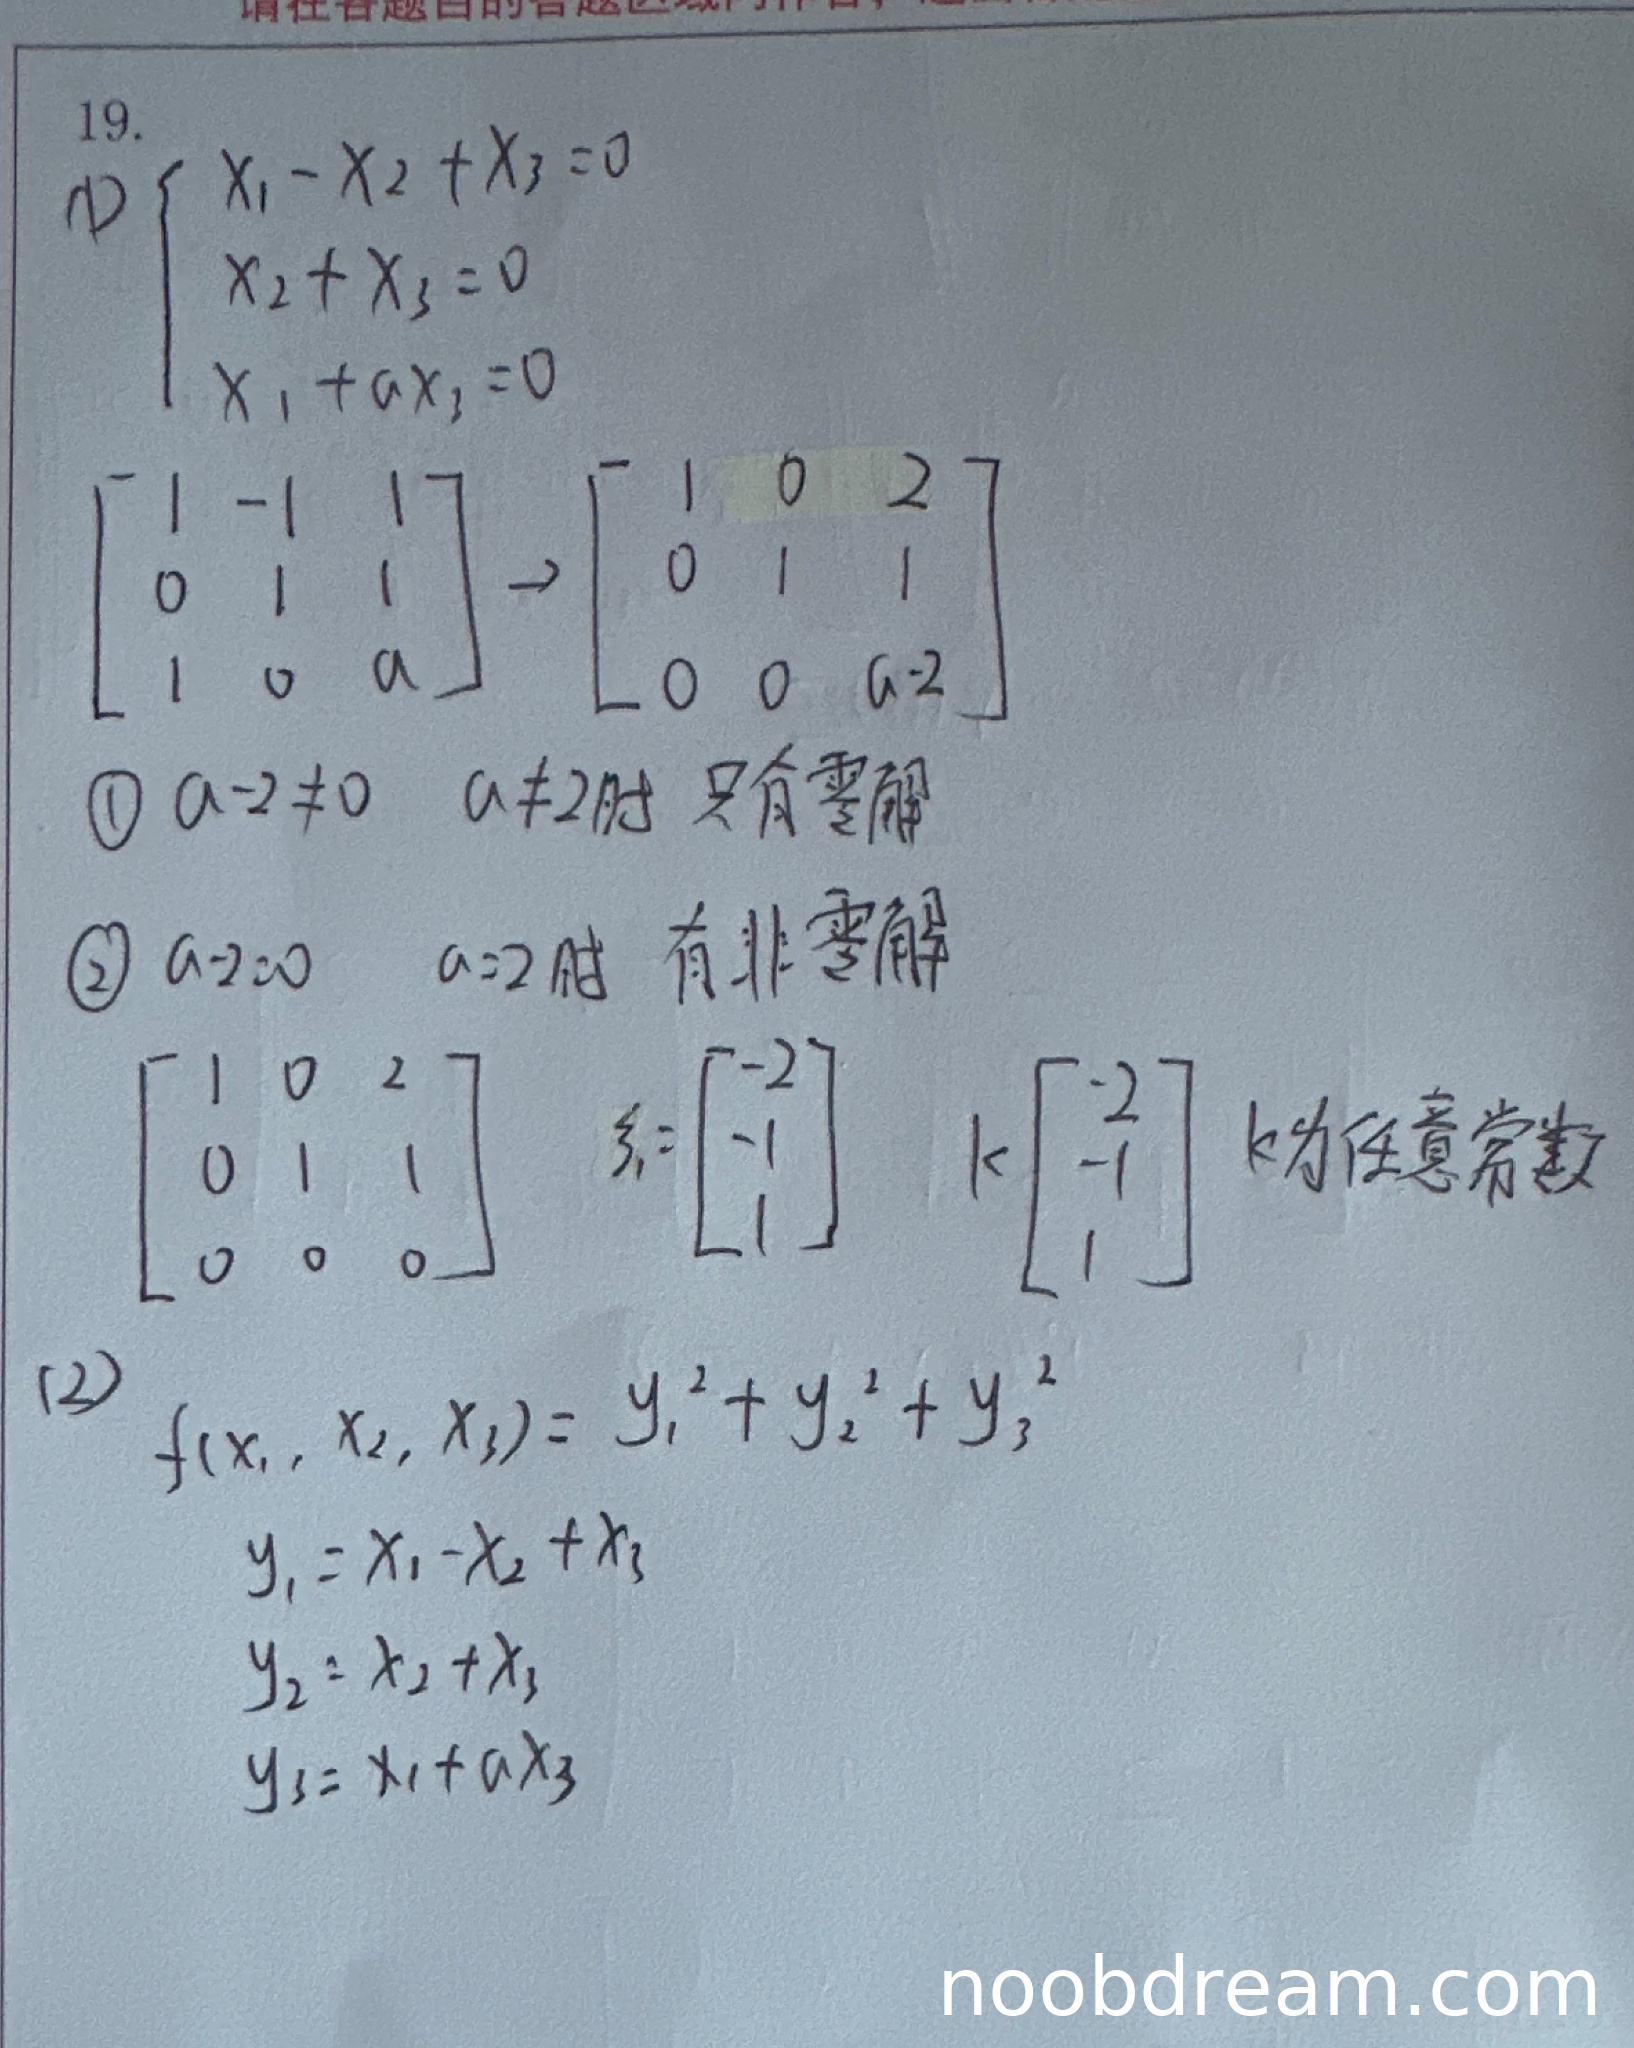 请在各题目的答题区域内作答，超出
19.
(1) { x₁ - x₂ + x₃ = 0
x₂ + x₃ = 0
x₁ + ax₃ = 0
[1 -1 1; 0 1 1; 1 0 a] → [1 0 2; 0 1 1; 0 0 a-2]
① a-2≠0 a≠2时 只有零解
② a-2=0 a=2时 有非零解
[1 0 2; 0 1 1; 0 0 0] ξ₁=[-2; -1; 1] k[-2; -1; 1] k为任意常数
(2)
f(x₁, x₂, x₃) = y₁² + y₂² + y₃²
y₁ = x₁ - x₂ + x₃
y₂ = x₂ + x₃
y₃ = x₁ + ax₃
noobdream.com